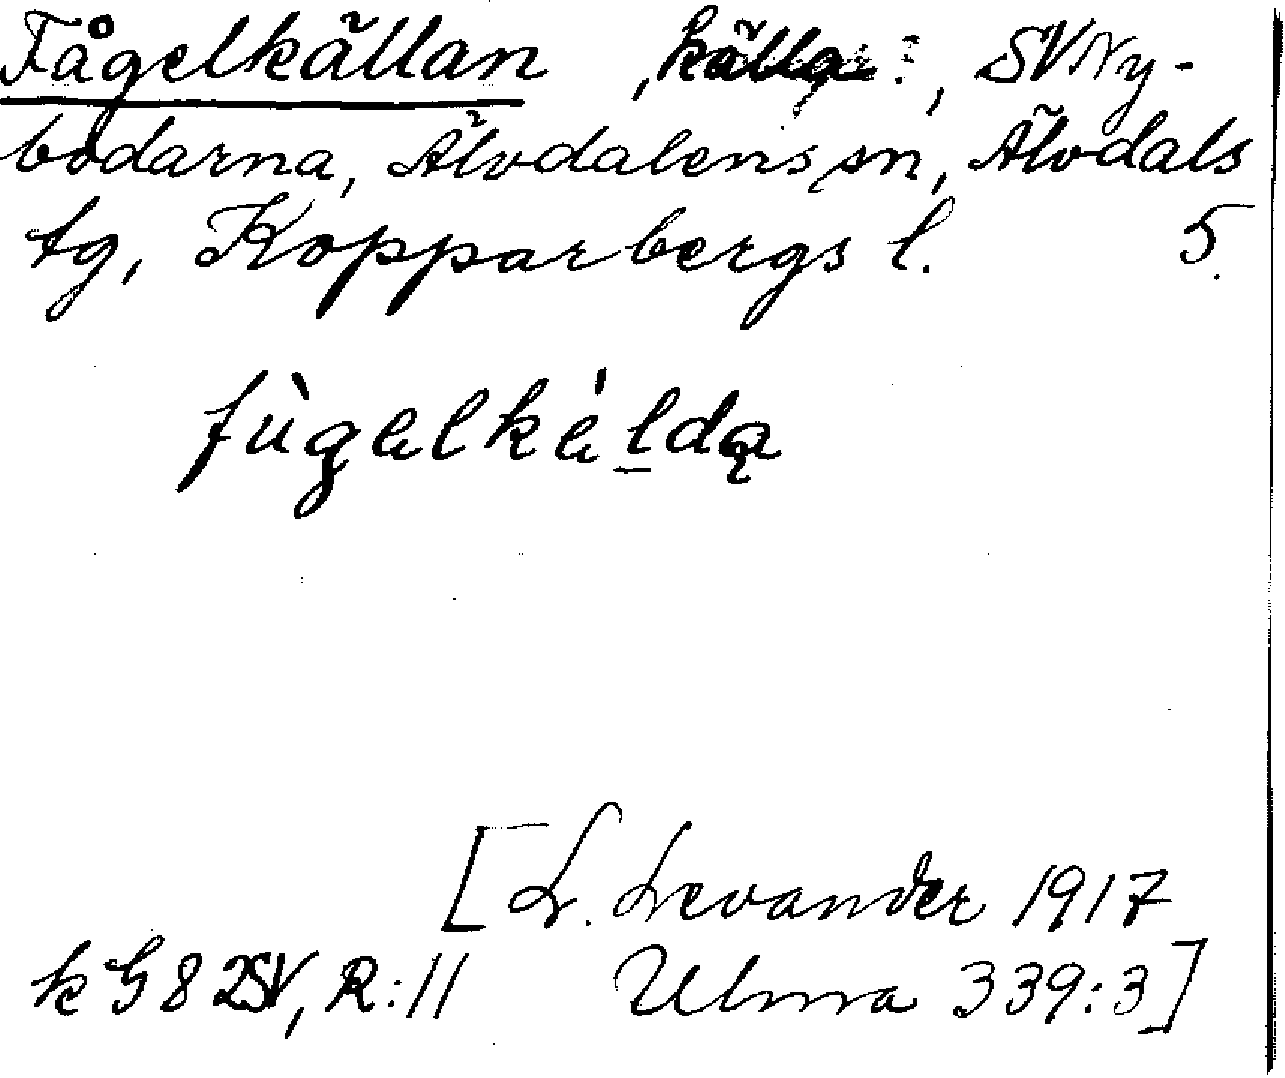 Fågelkällan , källa?, SV Ny-
bodarna, Älvdalens sn, Älvdals
tg, Kopparbergs l. 5.
fùgelkèldą
[L. Levander 1917
k G8 2SV, R:11 Ulma 339:3]